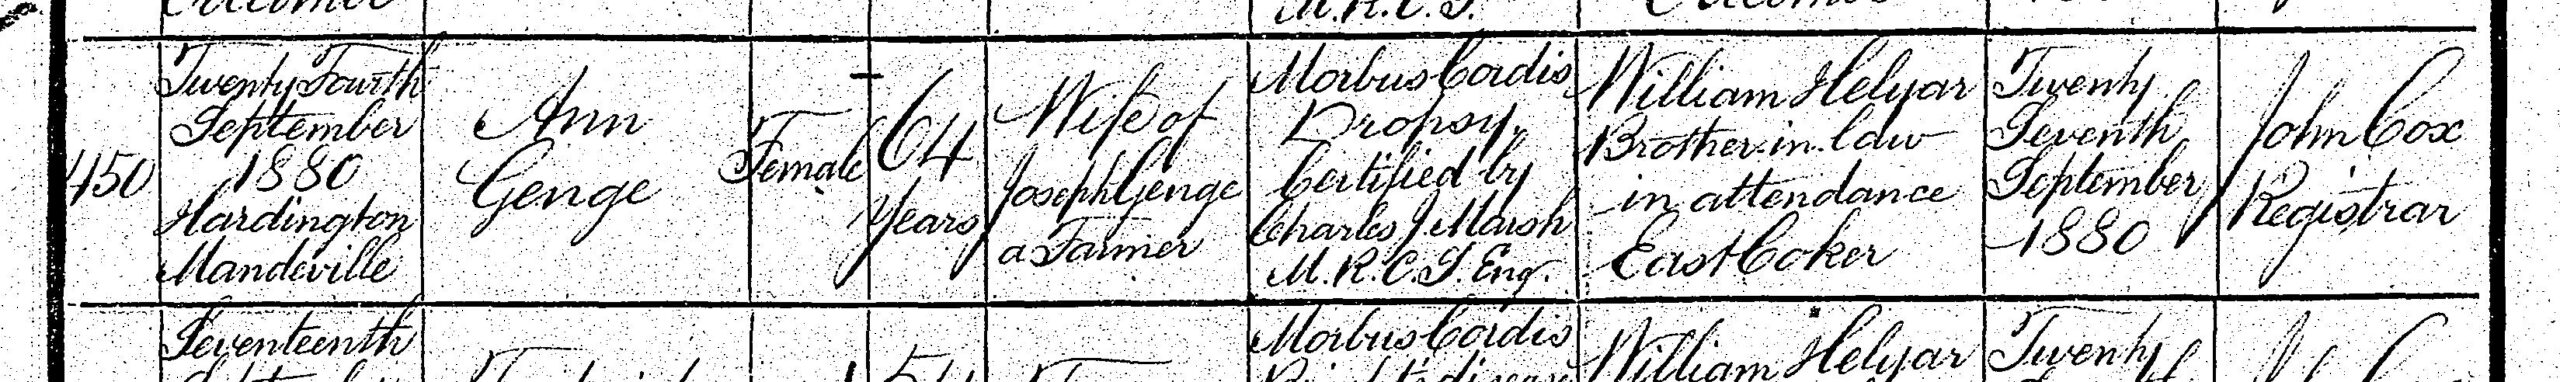 M.R.C.S.
450
Twenty Fourth
September
1880
Hardington
Mandeville
Ann
Genge
Female
64
Years
Wife of
Joseph Genge
a Farmer
Morbus Cordis
Dropsy.
Certified by
Charles J Marsh
M.R.C.S. Eng.
William Helyar
Brother-in-law
in attendance
East Coker
Twenty
Seventh
September
1880
John Cox
Registrar
Seventeenth
Morbus Cordis
William Helyar
Twenty